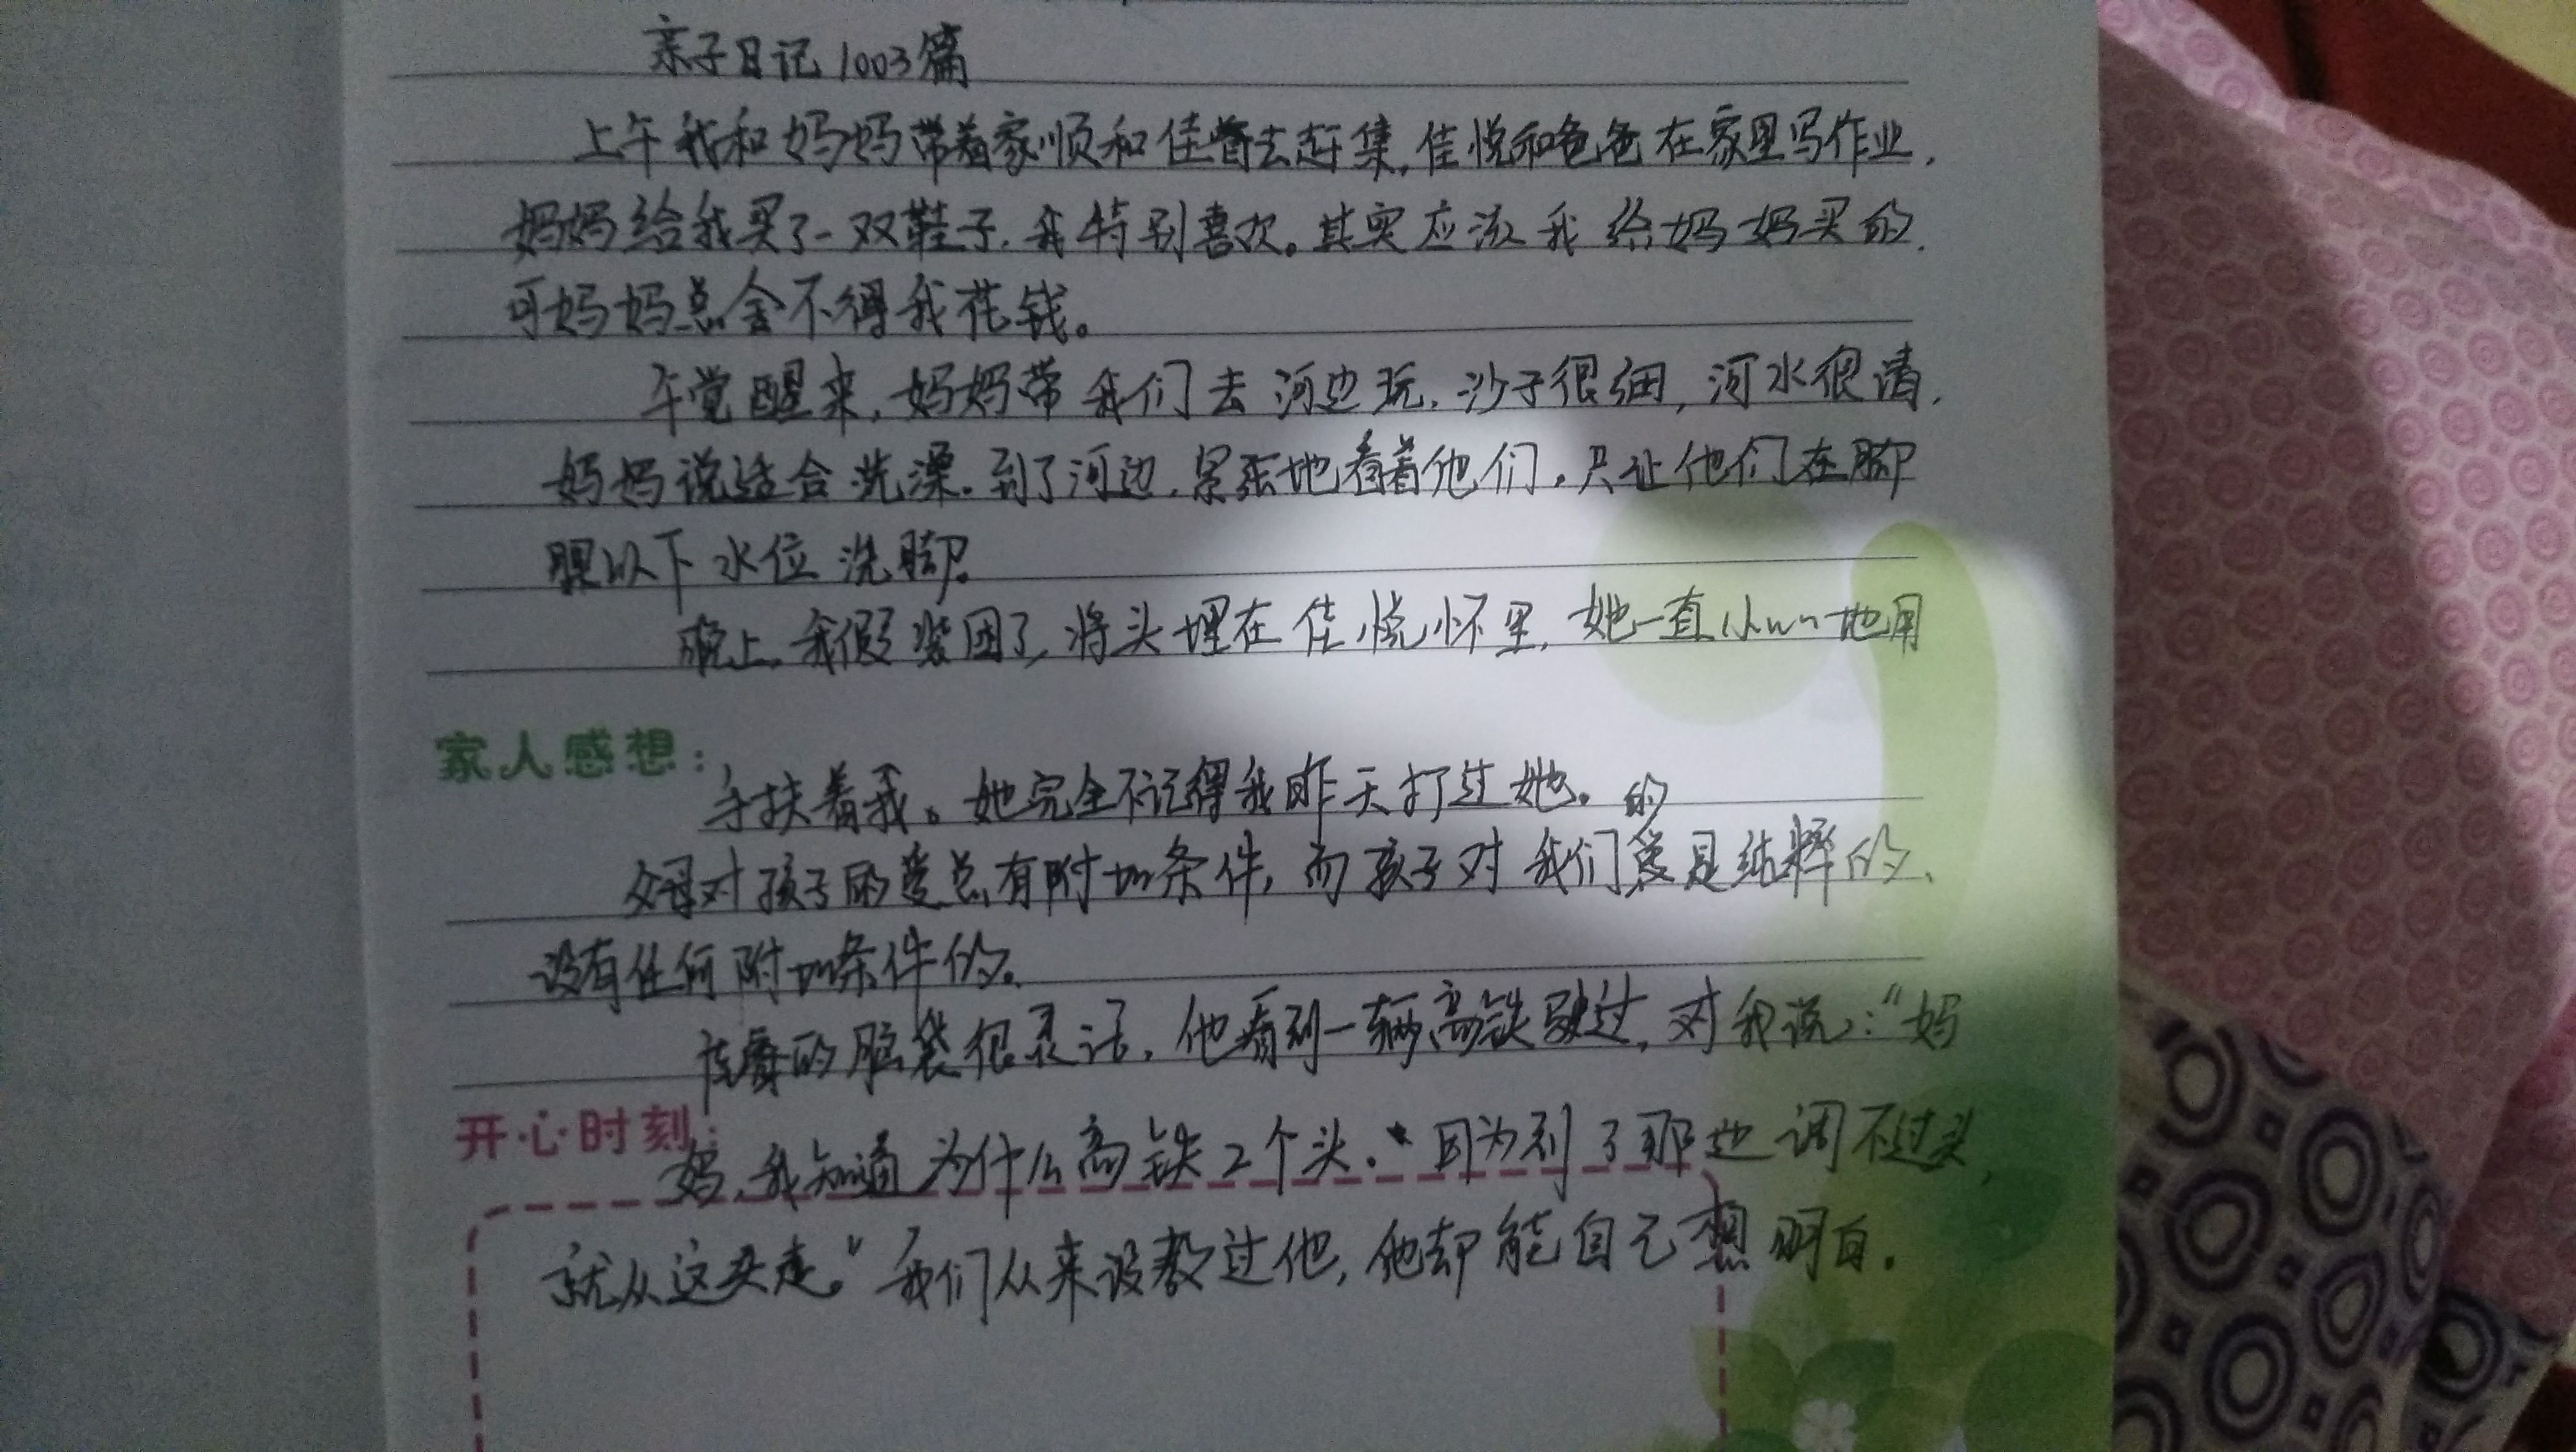 亲子日记1003篇
上午我和妈妈带着家顺和佳睿去赶集,佳悦和爸爸在家里写作业,
妈妈给我买了一双鞋子,我特别喜欢。其实应该我给妈妈买的,
可妈妈总舍不得我花钱。
午觉醒来,妈妈带我们去河边玩,沙子很细,河水很清,
妈妈说适合洗澡。到了河边,紧张地看着他们,只让他们在脚
踝以下水位洗脚。
晚上,我假装困了,将头埋在佳悦怀里,她一直小心地用
家人感想:
手扶着我。她完全不记得我昨天打过她。的
父母对孩子的爱总有附加条件,而孩子对我们爱是纯粹的、
没有任何附加条件的。
佳睿的脑袋很灵活,他看到一辆高铁驶过,对我说:“妈
开心时刻:
妈,我知道为什么高铁2个头。因为到了那边调不过头,
就从这头走。”我们从来没教过他,他却能自己想明白。